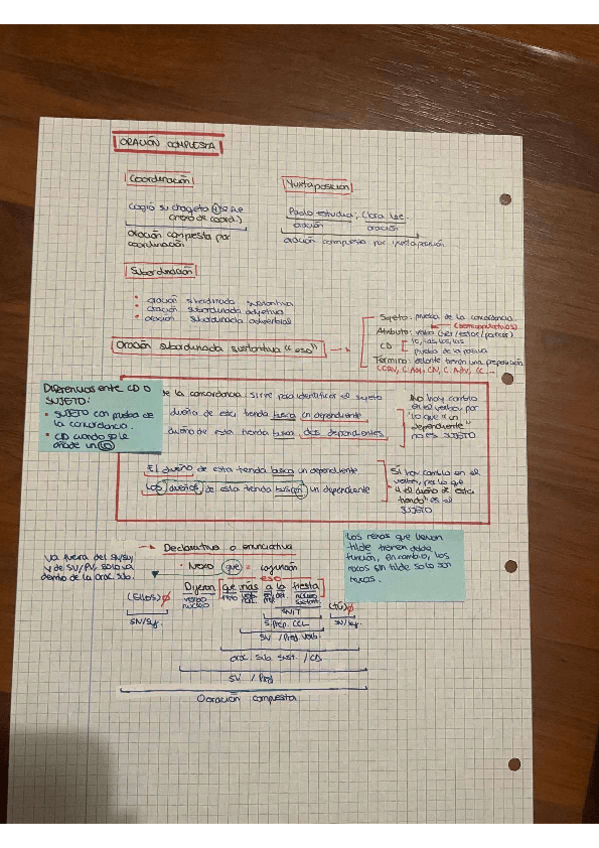 ORACIÓN COMPUESTA
Coordinación
Yuxtaposición
Cogió su chaqueta y se fue
(nexo de coord.)
oración compuesta por
coordinación
Paolo estudia; Clara lee.
oración oración
oración compuesta por yuxtaposición
Subordinación
• oración subordinada sustantiva
• oración subordinada adjetiva
• oración subordinada adverbial
Oración subordinada sustantiva "eso"
Sujeto: prueba de la concordancia
Atributo: verbo (ser/estar/parecer)
CD lo, las, los, la
prueba de la pasiva
Término: delante tienen una preposición
Diferencias entre CD o
SUJETO:
• SUJETO con prueba de
la concordancia.
• CD cuando se le
añade un (LO)
de la concordancia: sirve para identificar el sujeto
dueño de esta tienda busca un dependiente
dueño de esta tienda busca dos dependientes
No hay cambio
en el verbo, por
lo que "un
dependiente"
no es SUJETO
El dueño de esta tienda busca un dependiente
Los dueños de esta tienda buscan un dependiente
Sí hay cambio en el
verbo, por lo que
"el dueño de esta
tienda" es el
SUJETO
Declarativa o enunciativa
• Nexo que = conjunción
Va fuera del SN/Suj
y de SV/PV, solo va
dentro de la orac. sub.
Los nexos que llevan
tilde tienen doble
función, en cambio, los
nexos sin tilde solo son
nexos.
eso
Dijeron que irás a la fiesta
(Ellos) Ø
verbo
núcleo
nexo
(tú) Ø
SN/Suj.
SN/T
S.Prep. CCL
SN/Suj.
SV / Pred. Verb.
orac. Sub. Sust. / CD
SV / Pred
Oración compuesta